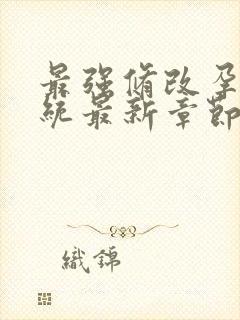 最强脩改孕
统最新章節
織錦